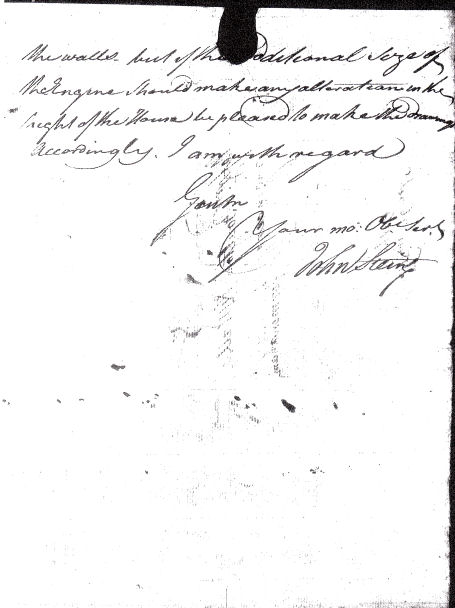 the walls. but if the additional size of
the Engine should make any alteration in the
hight of the House be pleased to make the drawings
Accordingly. I am with regard
Gentn
Your mo: Obt Sert
John Stein